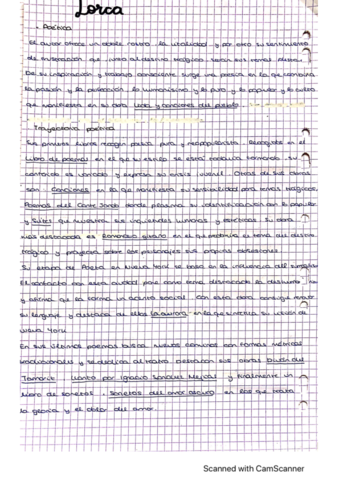 Lorca
• Poética
El autor ofrece un doble rostro: la vitalidad y por otro su sentimiento
de frustración que unido al destino trágico serán sus temas
De su inspiración y trabajo consciente surge una poesía en la que combina
la pasión y la perfección, lo humanísimo y lo puro y lo popular y lo culto
que manifiesta en su obra
Trayectoria poética
Sus primeros libros recogen poesía pura y neopopularista. Recogidos en el
Libro de poemas en el que su estilo se está todavía formando. Su
contenido es variado y expresa su crisis juvenil. Otras de sus obras
son Canciones en la que manifiesta su sensibilidad para temas trágicos,
Poemas del Cante Jondo donde plasma su identificación con lo popular
y Suites que muestra sus inquietudes y estéticas. Su obra
más destacada es Romancero gitano en el que el tema del destino
trágico y proyecta sobre los personajes sus propias obsesiones.
Su etapa de Poeta en Nueva York se basa en la influencia del
El contacto con esta ciudad
y afirma que la forma un acento social. Con esta obra consigue
su lenguaje y destaca de ellos La aurora en la que sintetiza su visión de
Nueva York
En sus últimos poemas busca nuevos caminos con formas métricas
tradicionales y se dedica al teatro. Destacan sus obras Diván del
Tamarit, Llanto por Ignacio Sánchez Mejías y finalmente un
libro de sonetos, Sonetos del amor oscuro en los que trata
la gloria y el dolor del amor.
Scanned with CamScanner